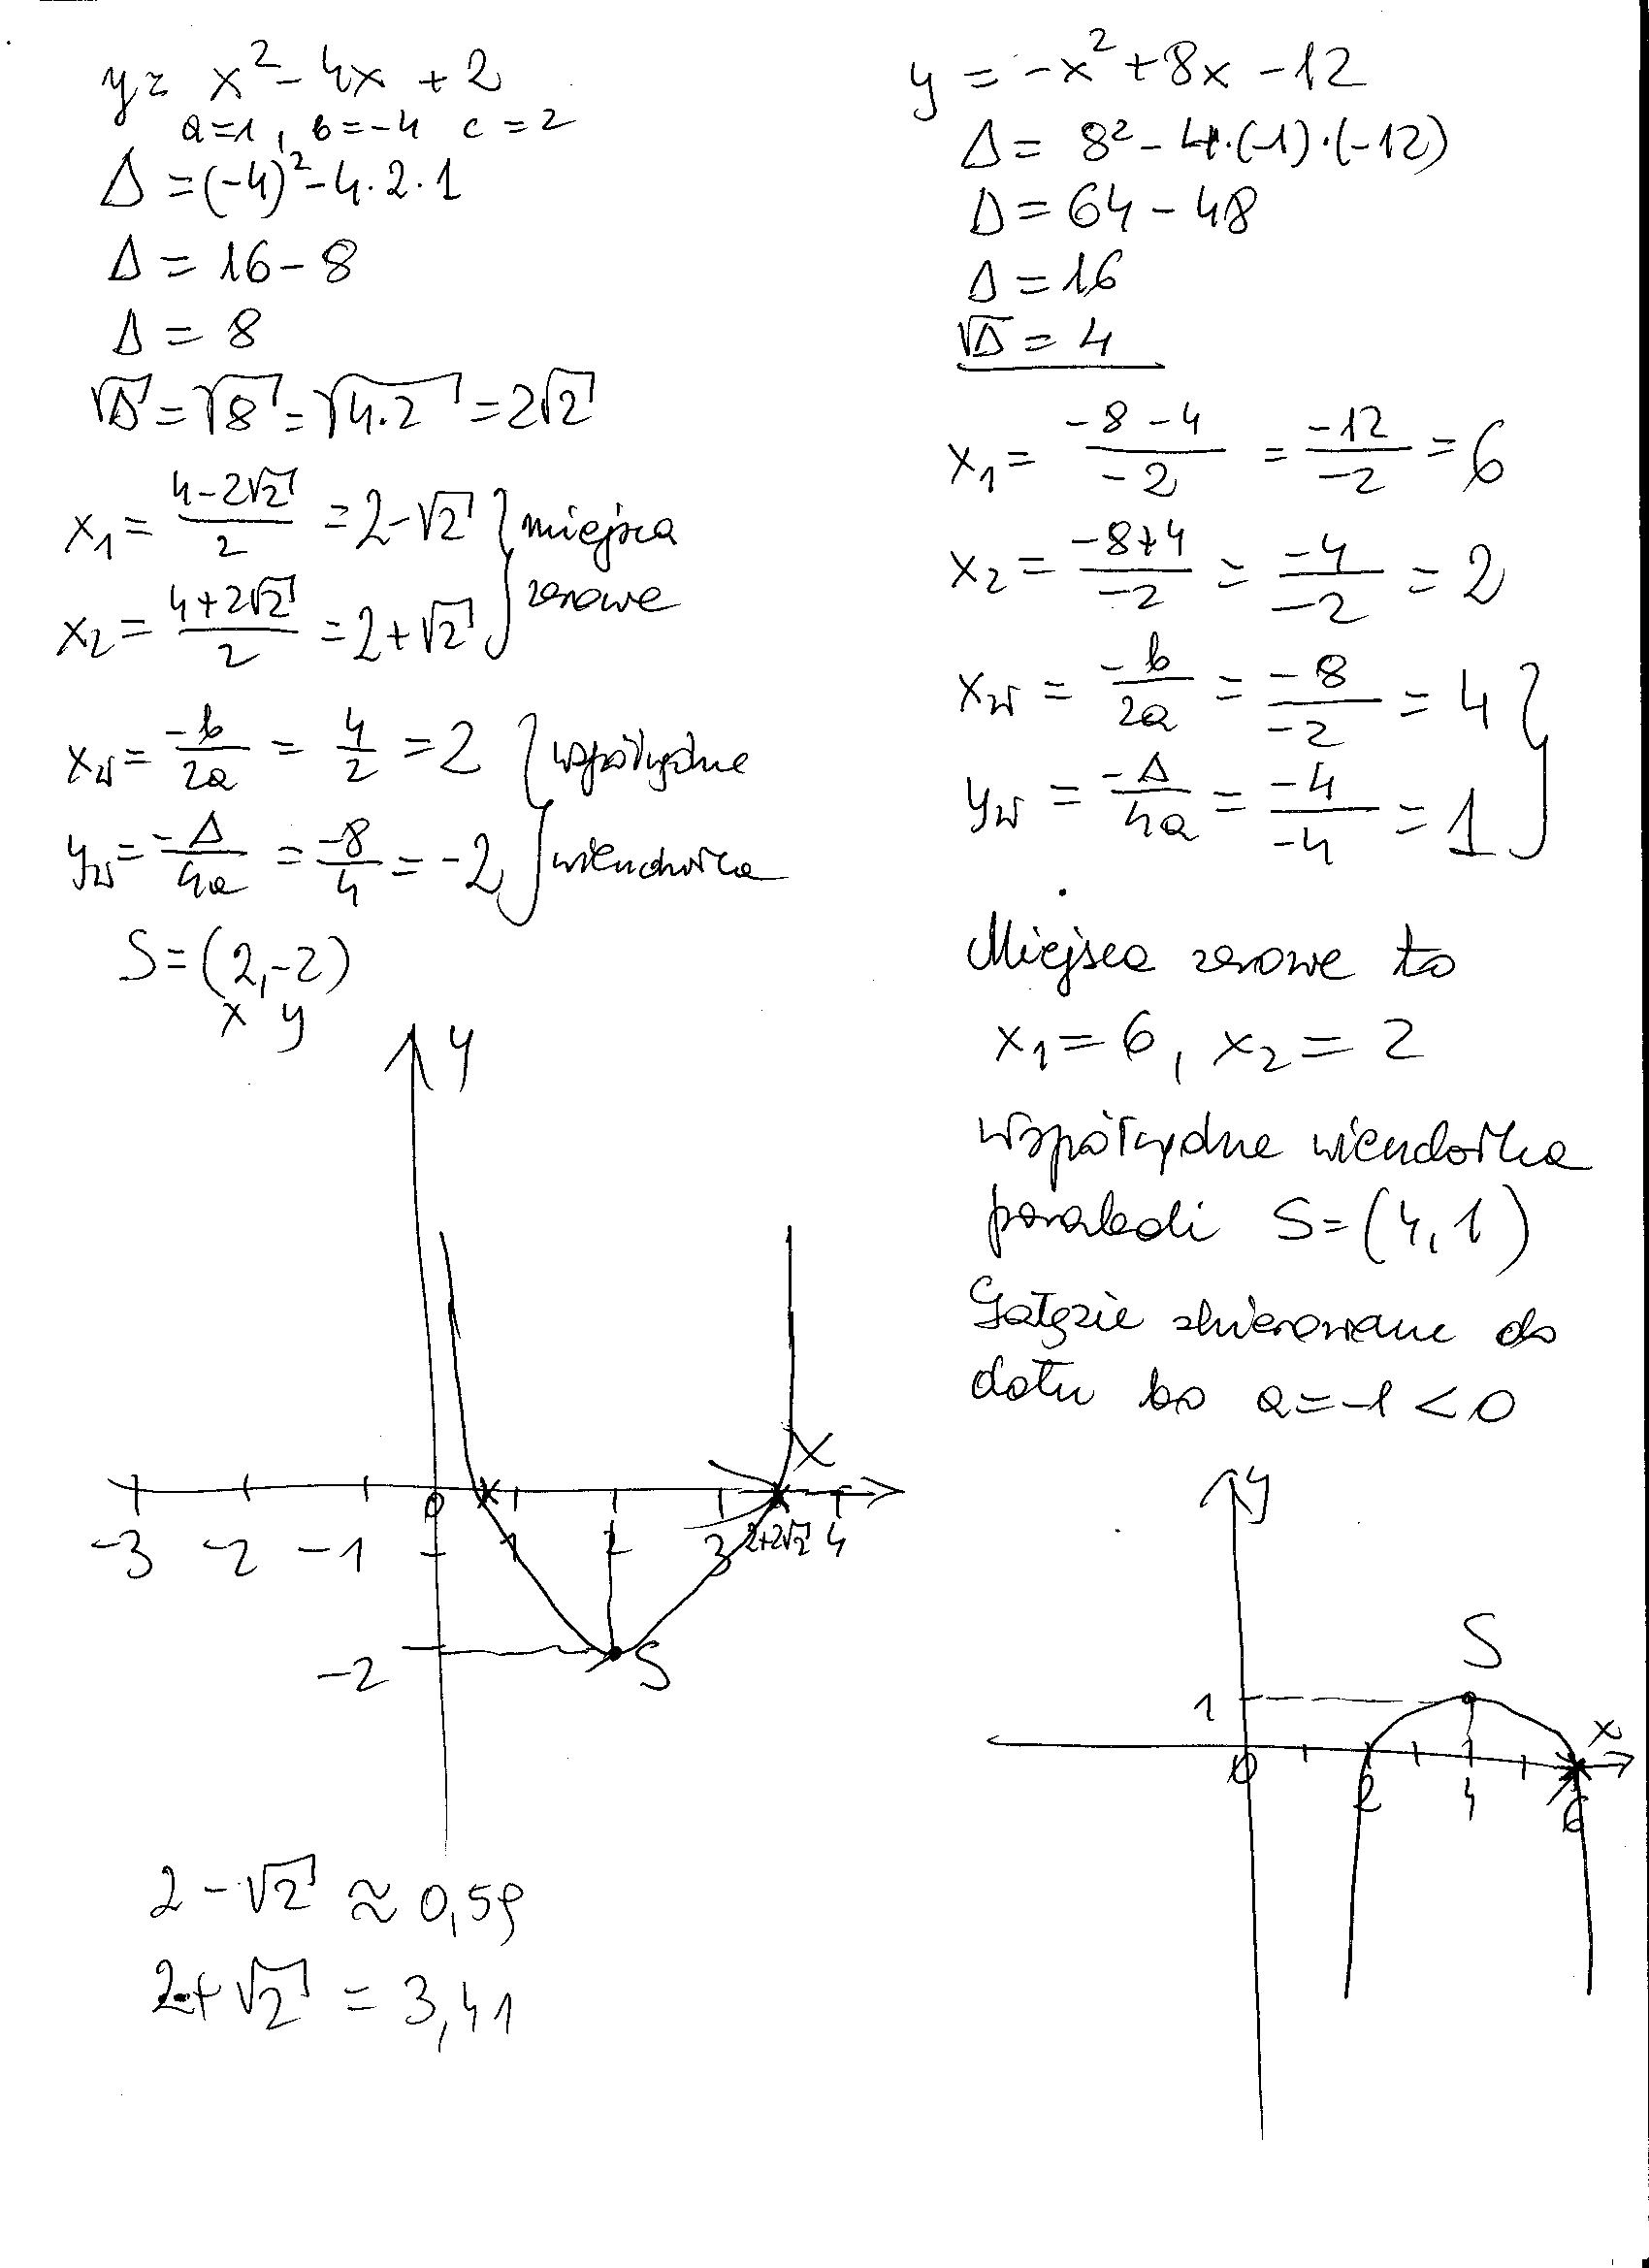 y = x² - 4x + 2
a=1, b=-4 c=2
Δ = (-4)² - 4·2·1
Δ = 16 - 8
Δ = 8
√Δ = √8 = √4·2 = 2√2
x₁ = (4-2√2)/2 = 2-√2 } miejsca
x₂ = (4+2√2)/2 = 2+√2 } zerowe
xw = -b/2a = 4/2 = 2 } współrzędne
yw = -Δ/4a = -8/4 = -2 } wierzchołka
S = (2,-2)
x y
y
X
-3 -2 -1 0 1 2 3 2+2√2 4
-2 S
2-√2 ≈ 0,59
2+√2 = 3,41
y = -x² + 8x - 12
Δ = 8² - 4·(-1)·(-12)
Δ = 64 - 48
Δ = 16
√Δ = 4
x₁ = (-8-4)/-2 = -12/-2 = 6
x₂ = (-8+4)/-2 = -4/-2 = 2
xw = -b/2a = -8/-2 = 4 }
yw = -Δ/4a = -4/-4 = 1 }
Miejsca zerowe to
x₁ = 6, x₂ = 2
współrzędne wierzchołka
paraboli S = (4,1)
Gałęzie skierowane do
dołu bo a = -1 < 0
y
S
1
x
0 2 4 6